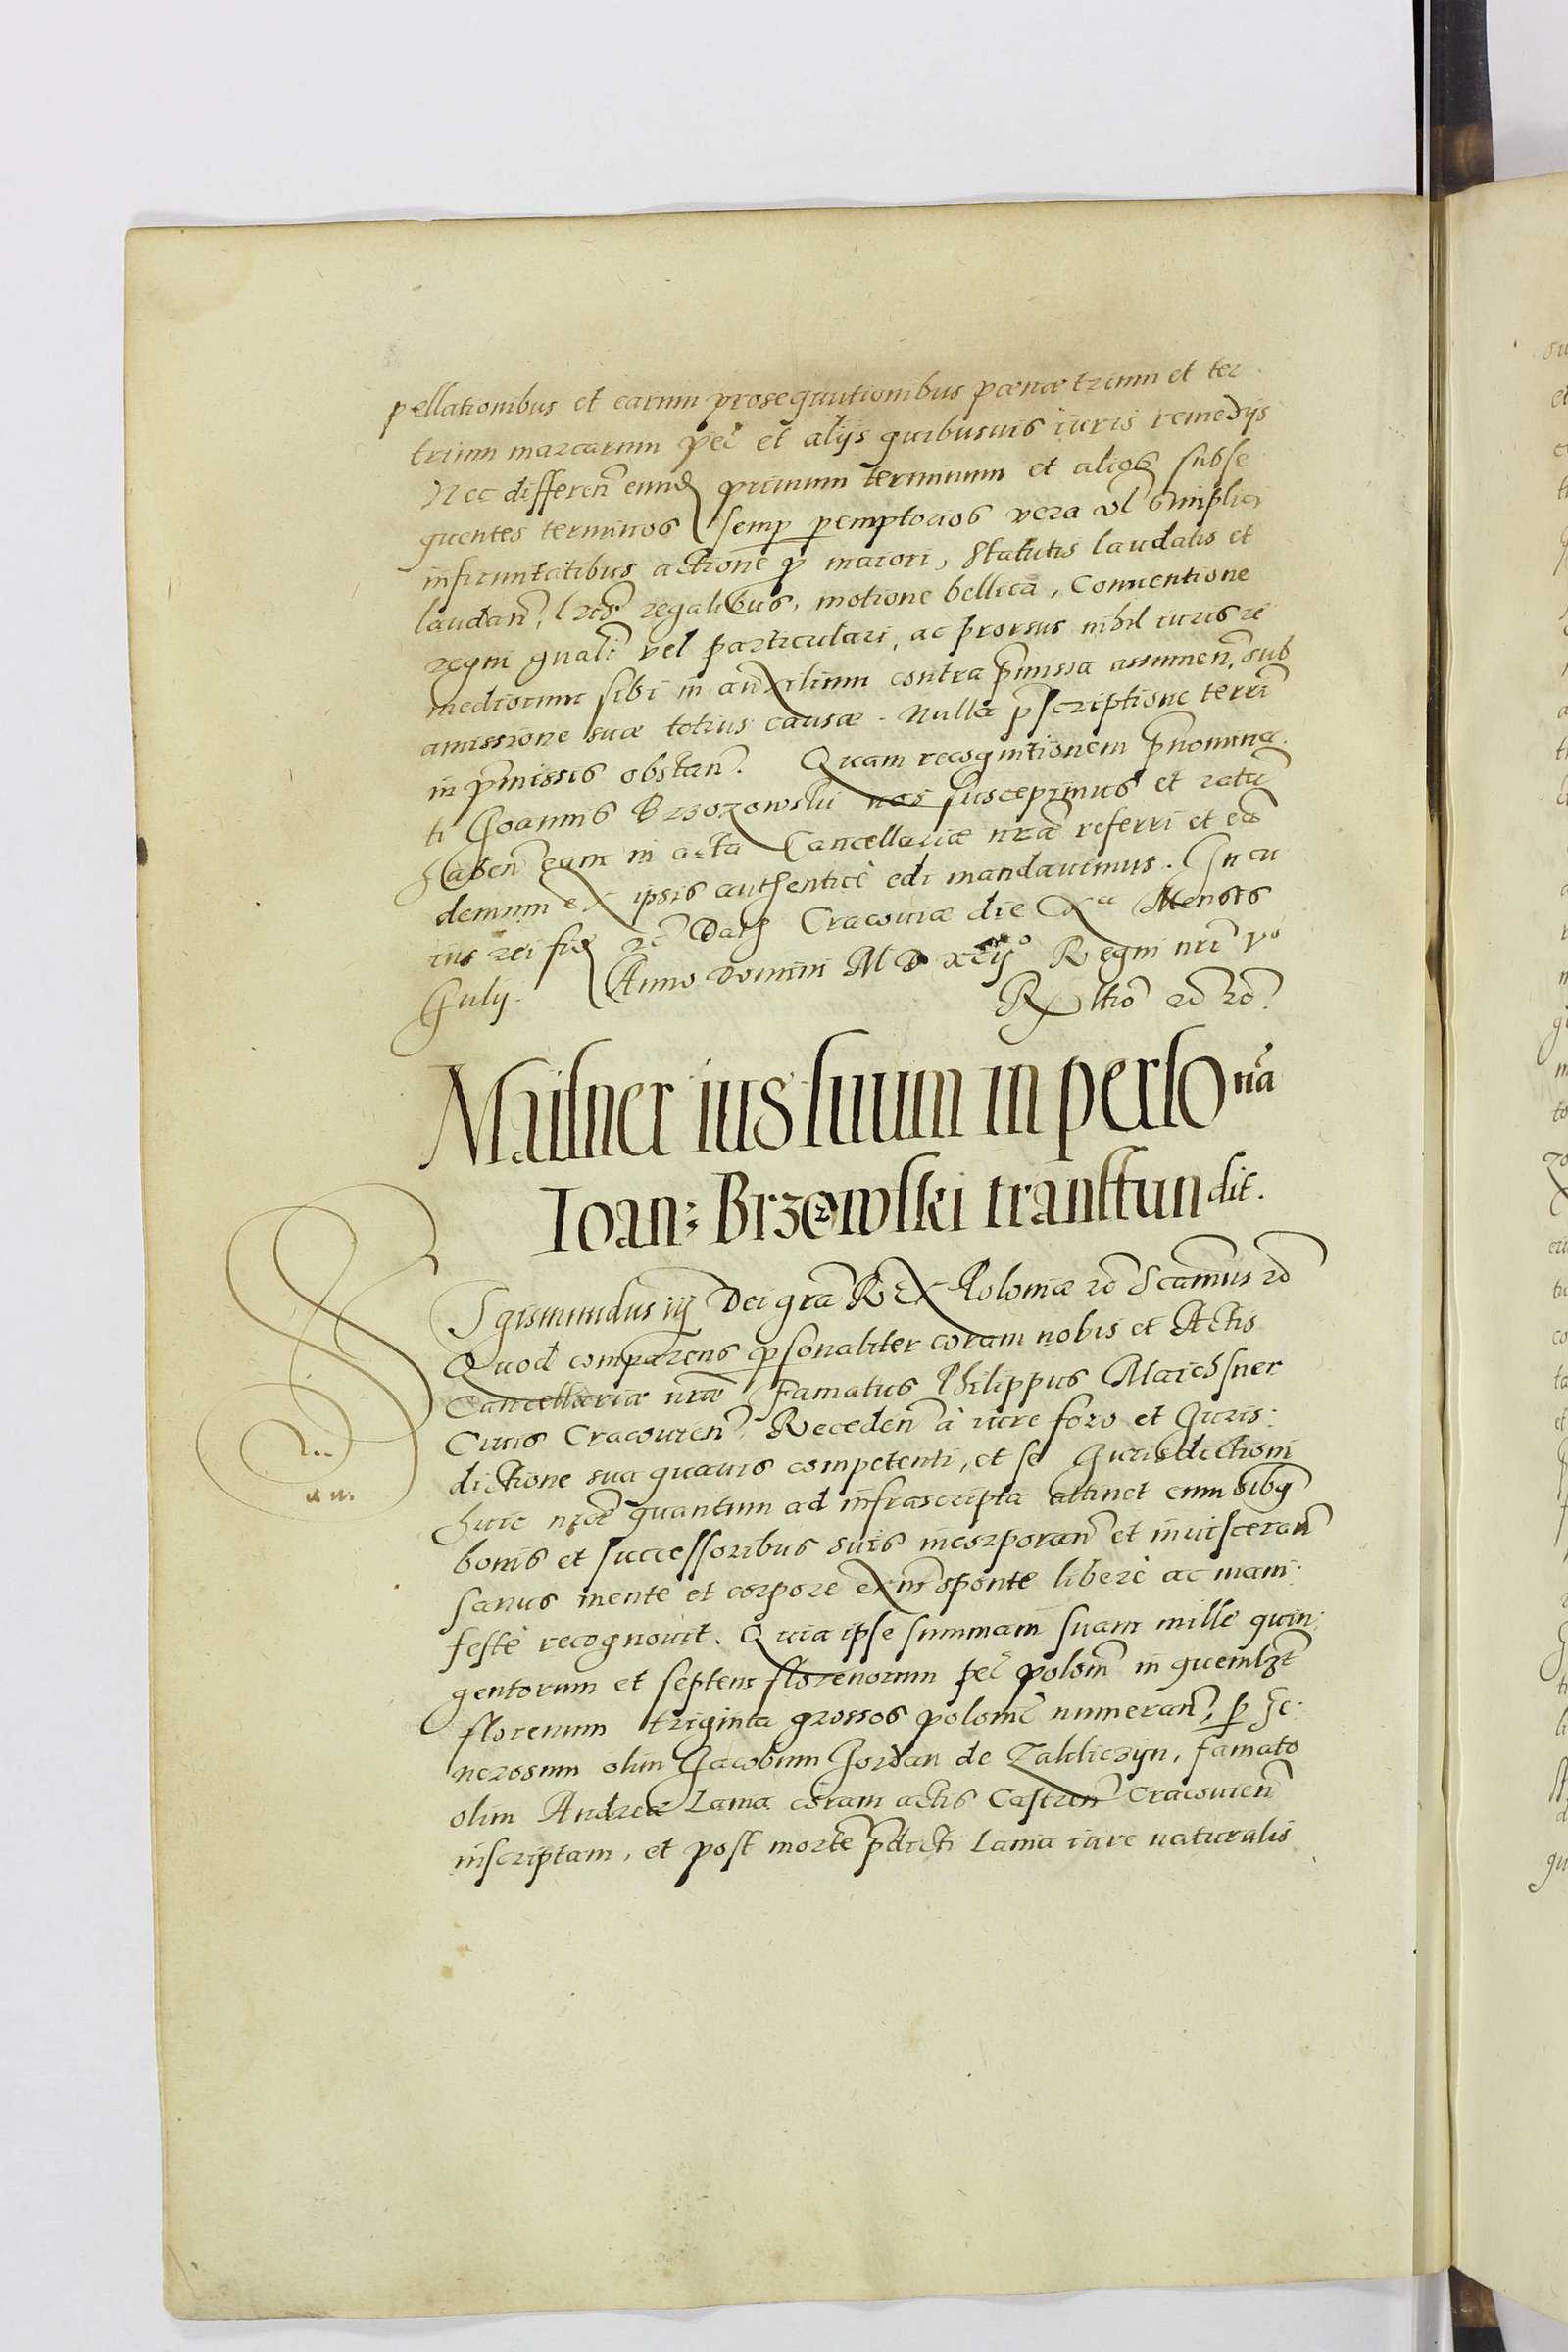 pellationibus et earum prosequutionibus poenæ trium et ter
trium marcarum pec̃ et alijs quibusuis iuris remedijs
Nec differeñ eund primum terminum et alios subse
quentes terminos semp pemptorios vera vl simplici
infirmitatibus actione p maiori, statutis laudatis et
laudañ, lr̃is regalibus, motione bellica, Conuentione
regni gnali vel particulari, ac prorsus nihil iuris re
mediorum sibi in auxilium contra p̃missa assumeñ, sub
amissione suæ totius causæ. Nulla p̃scriptione terr̃
in p̃missis obstañ. Quam recognitionem p̃nomina
ti Joannis Brzozowski nos suscepimus et ratã
habeñ eam in acta Cancellariæ nr̃æ referri et eã
demum ex ipsis authenticè edi mandauimus. In cu
ius rei fid rc̃ Datt Cracouiæ die Xa Mensis
Julij. Anno Domini M D XCij° Regni nr̃i v°
Rltiõ rc̃ rc̃.
Maisner ius suum in persona
Ioan: Brzozowski transfundit.
Sigismundus iij Dei gr̃a REX Poloniæ rc̃ Scamus rc̃
Quod comparens psonaliter coram nobis et Actis
Cancellariæ nr̃æ Famatus Philippus Maichsner
Ciuis Cracouieñ, Recedeñ à iure foro et Juris:
dictione sua quauis competenti, et se Jurisdictioni
huic nr̃æ quantum ad infrascripta attinet cum oibq
bonis et successoribus suis incorporañ et inuisceráñ
sanus mente et corpore exñs sponte liberè ac mani:
festè recognouit. Quia ipse summam suam mille quin:
gentorum et septem florenorum pec̃ polom̃ in quemlzt
florenum triginta grossos polom̃ numerañ, p Ge:
nerosum olim Jacobum Jordan de Zakliczyn, famato
olim Andreæ Lama coram actis Castreñ Cracouieñ
inscriptam, et post mortẽ p̃dicti Lama iure naturalis